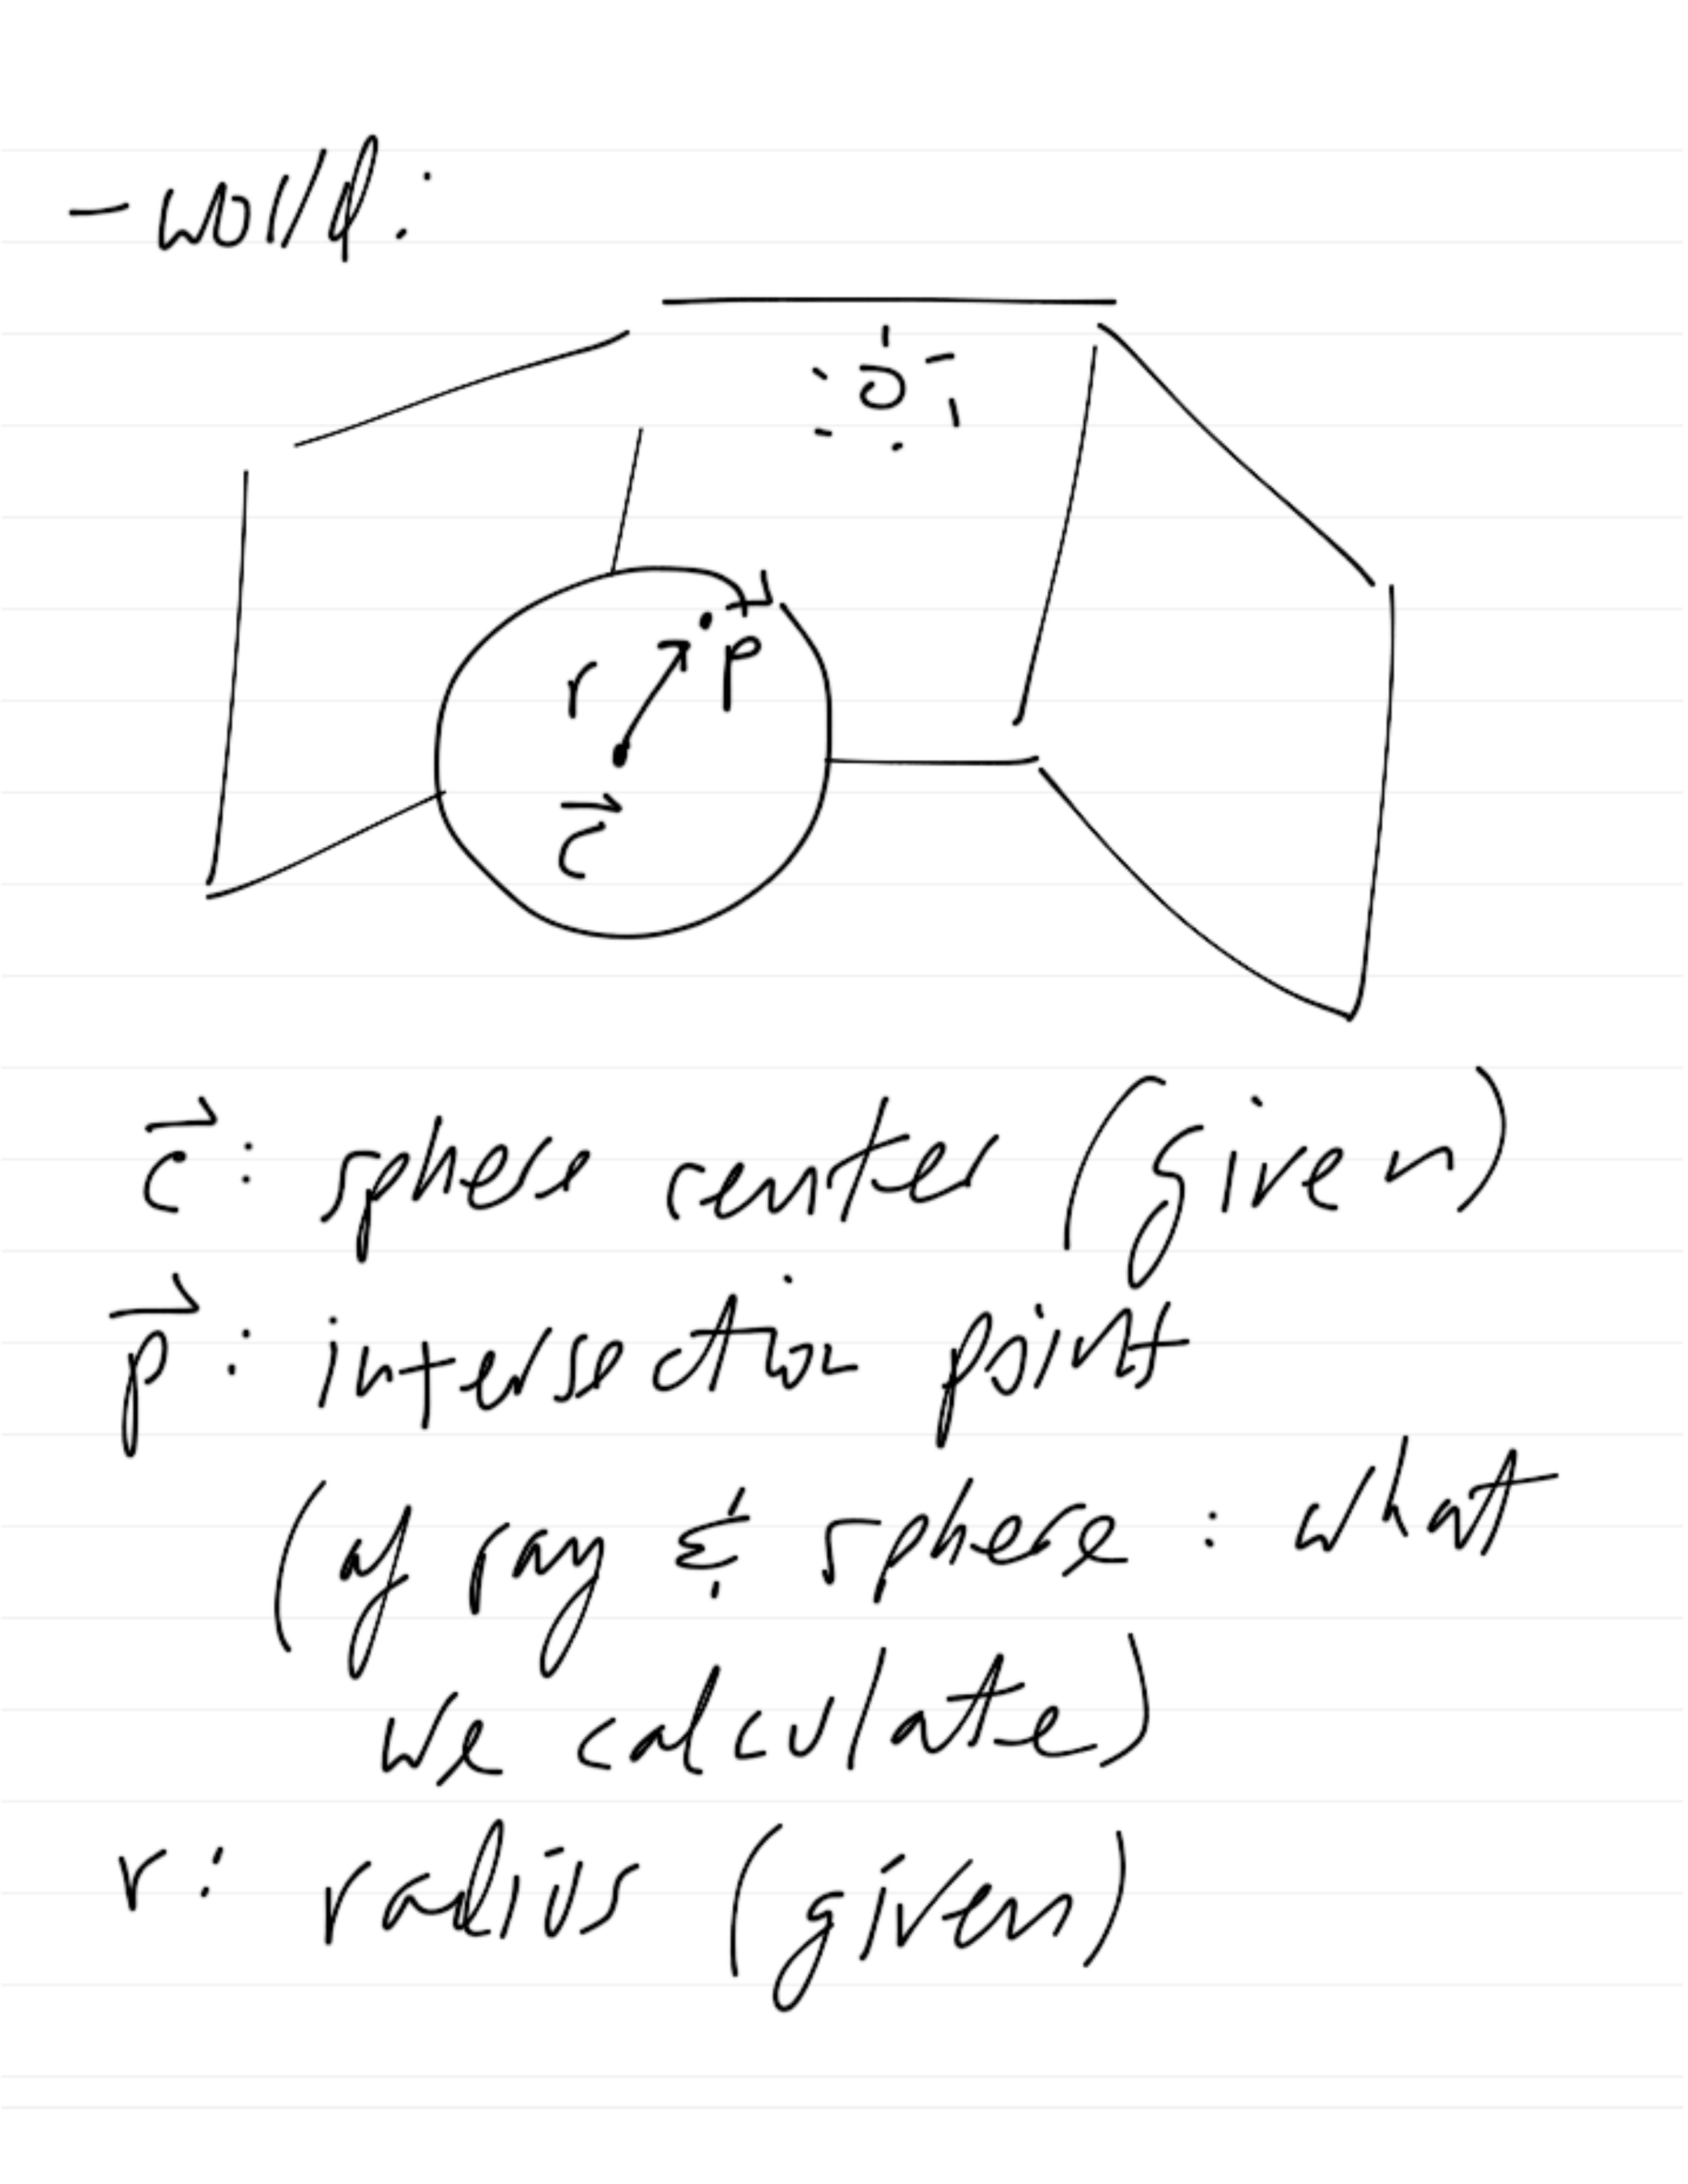 - world:
r
p⃗
c⃗
c⃗: sphere center (given)
p⃗: intersection point
(of ray & sphere: what
we calculate)
r: radius (given)